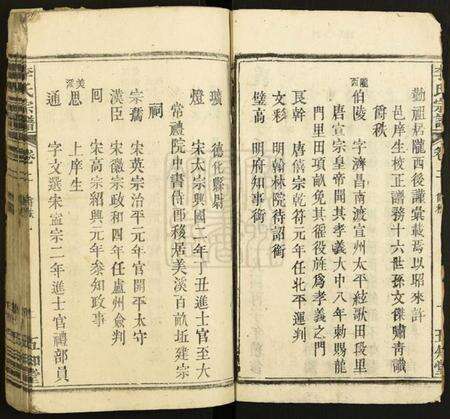 勤祖居隴西後謹彙載焉以昭來許
邑庠生校正譜務十六世孫文傑嘯青識
爵秩
伯陵 字濟昌南渡宣州太平絃歌田段里
唐宣宗皇帝聞其孝義大中八年勅賜龍
門里田項畝免其徭役旌為孝義之門
長幹 唐僖宗乾符元年任北平運判
文彩 明翰林院待詔銜
璧高 明府知事銜
璣 德化縣尉
燈 宋太宗興國二年丁丑進士官至大
常禮院中書侍郎移居美溪百畝坵建宗
祠
宗喬 宋英宗治平元年官開平太守
漢臣 宋徽宗政和四年任盧州僉判
回 宋高宗紹興元年叅知政事
美溪
上庠生
通 字文選宋寧宗二年進士官禮部員
李氏宗譜 卷二
五知堂